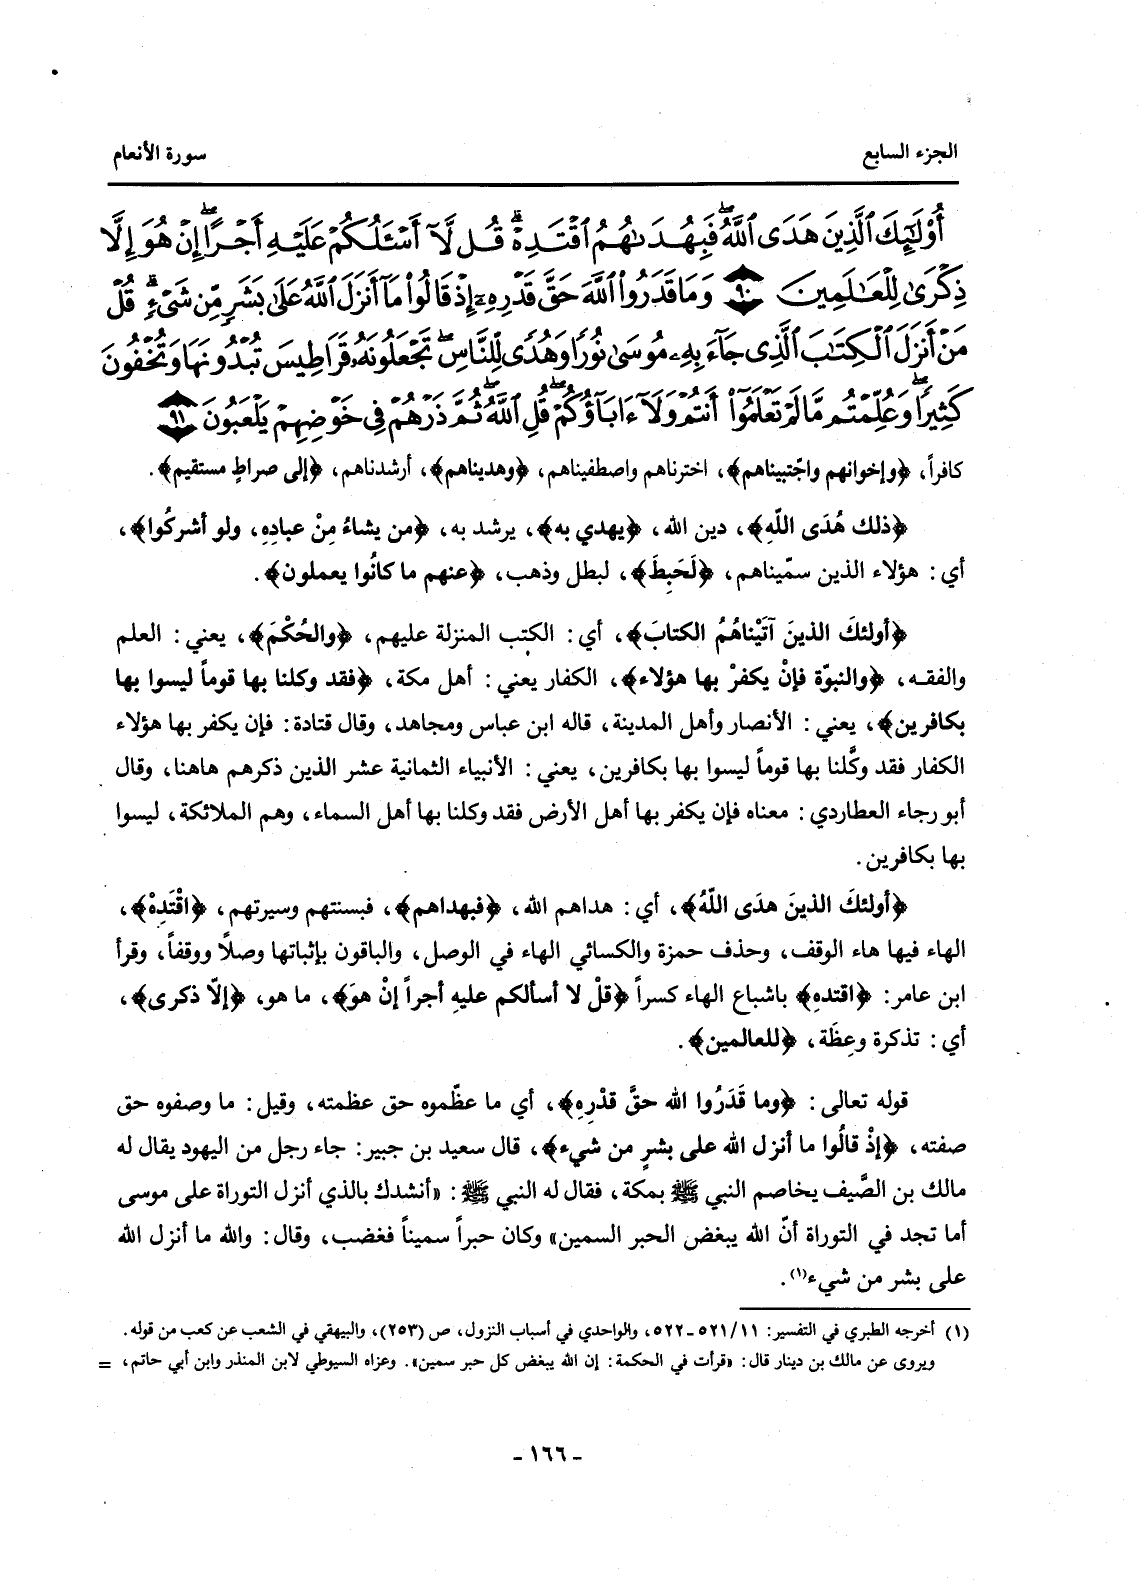 الجزء السابع
سورة الأنعام
أُوْلَٰٓئِكَ ٱلَّذِينَ هَدَى ٱللَّهُۖ فَبِهُدَىٰهُمُ ٱقْتَدِهْۗ قُل لَّآ أَسْـَٔلُكُمْ عَلَيْهِ أَجْرًاۖ إِنْ هُوَ إِلَّا
ذِكْرَىٰ لِلْعَٰلَمِينَ ٩٠ وَمَا قَدَرُواْ ٱللَّهَ حَقَّ قَدْرِهِۦٓ إِذْ قَالُواْ مَآ أَنزَلَ ٱللَّهُ عَلَىٰ بَشَرٍ مِّن شَىْءٍۗ قُلْ
مَنْ أَنزَلَ ٱلْكِتَٰبَ ٱلَّذِى جَآءَ بِهِۦ مُوسَىٰ نُورًا وَهُدًى لِّلنَّاسِۖ تَجْعَلُونَهُۥ قَرَاطِيسَ تُبْدُونَهَا وَتُخْفُونَ
كَثِيرًاۖ وَعُلِّمْتُم مَّا لَمْ تَعْلَمُوٓاْ أَنتُمْ وَلَآ ءَابَآؤُكُمْۖ قُلِ ٱللَّهُۖ ثُمَّ ذَرْهُمْ فِى خَوْضِهِمْ يَلْعَبُونَ ٩١
كافراً، ﴿وإخوانهم واجْتبيناهم﴾، اخترناهم واصطفيناهم، ﴿وهديناهم﴾، أرشدناهم، ﴿إلى صراطٍ مستقيم﴾.
﴿ذلك هُدَى اللّهِ﴾، دين الله، ﴿يهدي به﴾، يرشد به، ﴿من يشاءُ مِنْ عبادِهِ، ولو أشركُوا﴾،
أي: هؤلاء الذين سمّيناهم، ﴿لَحَبِطَ﴾، لبطل وذهب، ﴿عنهم ما كانُوا يعملون﴾.
﴿أولئكَ الذينَ آتَيْناهُمُ الكتابَ﴾، أي: الكتب المنزلة عليهم، ﴿والحُكْمَ﴾، يعني: العلم
والفقه، ﴿والنبوّة فإنْ يكفرْ بها هؤلاء﴾، الكفار يعني: أهل مكة، ﴿فقد وكلنا بها قوماً ليسوا بها
بكافرين﴾، يعني: الأنصار وأهل المدينة، قاله ابن عباس ومجاهد، وقال قتادة: فإن يكفر بها هؤلاء
الكفار فقد وكَّلنا بها قوماً ليسوا بها بكافرين، يعني: الأنبياء الثمانية عشر الذين ذكرهم هاهنا، وقال
أبو رجاء العطاردي: معناه فإن يكفر بها أهل الأرض فقد وكلنا بها أهل السماء، وهم الملائكة، ليسوا
بها بكافرين.
﴿أولئكَ الذينَ هدَى اللّهُ﴾، أي: هداهم الله، ﴿فبهداهم﴾، فبسنتهم وسيرتهم، ﴿اقْتَدِهْ﴾،
الهاء فيها هاء الوقف، وحذف حمزة والكسائي الهاء في الوصل، والباقون بإثباتها وصلاً ووقفاً، وقرأ
ابن عامر: ﴿اقتدهِ﴾ باشباع الهاء كسراً ﴿قلْ لا أسألكم عليهِ أجراً إنْ هوَ﴾، ما هو، ﴿إلّا ذكرى﴾،
أي: تذكرة وعِظَة، ﴿للعالمين﴾.
قوله تعالى: ﴿وما قَدَرُوا الله حقَّ قدْرِهِ﴾، أي ما عظّموه حق عظمته، وقيل: ما وصفوه حق
صفته، ﴿إذْ قالُوا ما أنزل الله على بشرٍ من شيء﴾، قال سعيد بن جبير: جاء رجل من اليهود يقال له
مالك بن الصَّيف يخاصم النبي ﷺ بمكة، فقال له النبي ﷺ: «أنشدك بالذي أنزل التوراة على موسى
أما تجد في التوراة أنّ الله يبغض الحبر السمين» وكان حبراً سميناً فغضب، وقال: والله ما أنزل الله
على بشر من شيء(١).
(١) أخرجه الطبري في التفسير: ١١/٥٢١-٥٢٢، والواحدي في أسباب النزول، ص (٢٥٣)، والبيهقي في الشعب عن كعب من قوله.
ويروى عن مالك بن دينار قال: «قرأت في الحكمة: إن الله يبغض كل حبر سمين». وعزاه السيوطي لابن المنذر وابن أبي حاتم، =
- ١٦٦ -